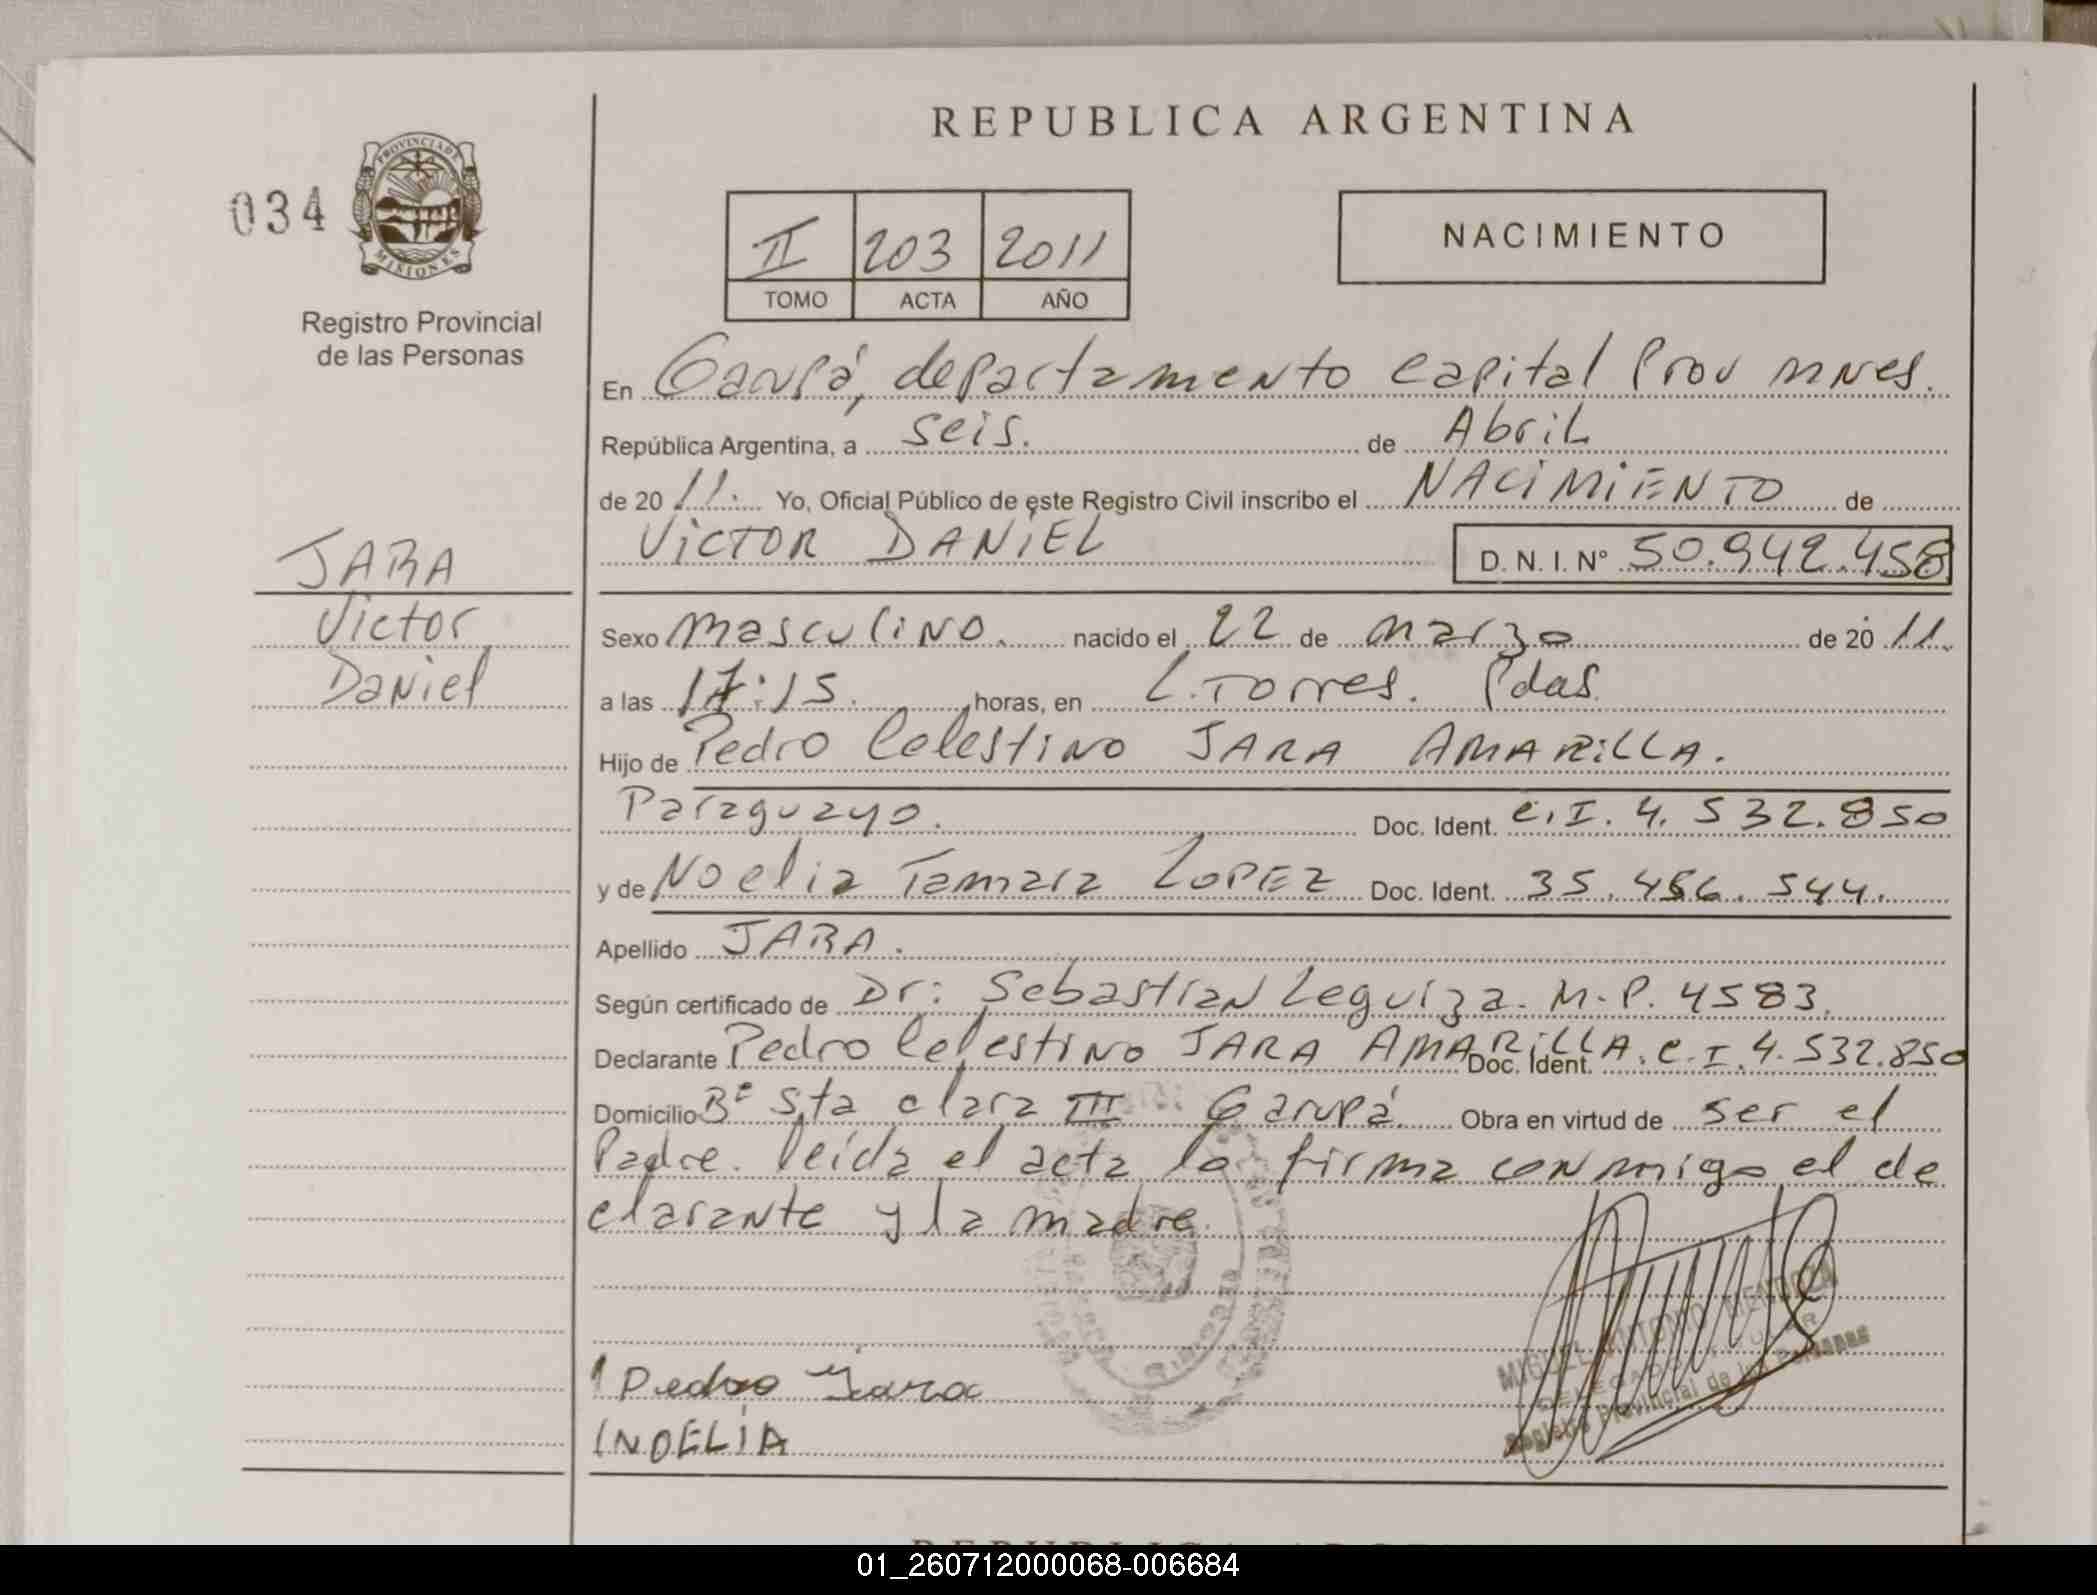 REPUBLICA ARGENTINA
034
PROVINCIA DE
MISIONES
Registro Provincial
de las Personas
II 203 2011
TOMO ACTA AÑO
NACIMIENTO
En Garupá, departamento Capital Prov mnes.
República Argentina, a seis. de Abril
de 20 11. Yo, Oficial Público de este Registro Civil inscribo el NACIMIENTO de
VICTOR DANIEL D. N. I. N° 50.942.458
JARA
Victor
Daniel
Sexo masculino. nacido el 22 de marzo de 20 11.
a las 17:15. horas, en L. Torres. Pdas.
Hijo de Pedro Celestino JARA AMARILLA.
Paraguayo. Doc. Ident. C.I. 4.532.850
y de Noelia Tamara LOPEZ Doc. Ident. 35.456.544.
Apellido JARA.
Según certificado de Dr: Sebastian Leguiza. M.P. 4583.
Declarante Pedro Celestino JARA AMARILLA. Doc. Ident. C.I. 4.532.850
Domicilio B° Sta clara III Garupá. Obra en virtud de ser el
Padre. leida el acta la firma conmigo el de
clarante y la madre.
MIGUEL ANTONIO MENDOZA
DELEGADO TITULAR
Registro Provincial de las Personas
Pedro Jara
NOELIA
01_260712000068-006684